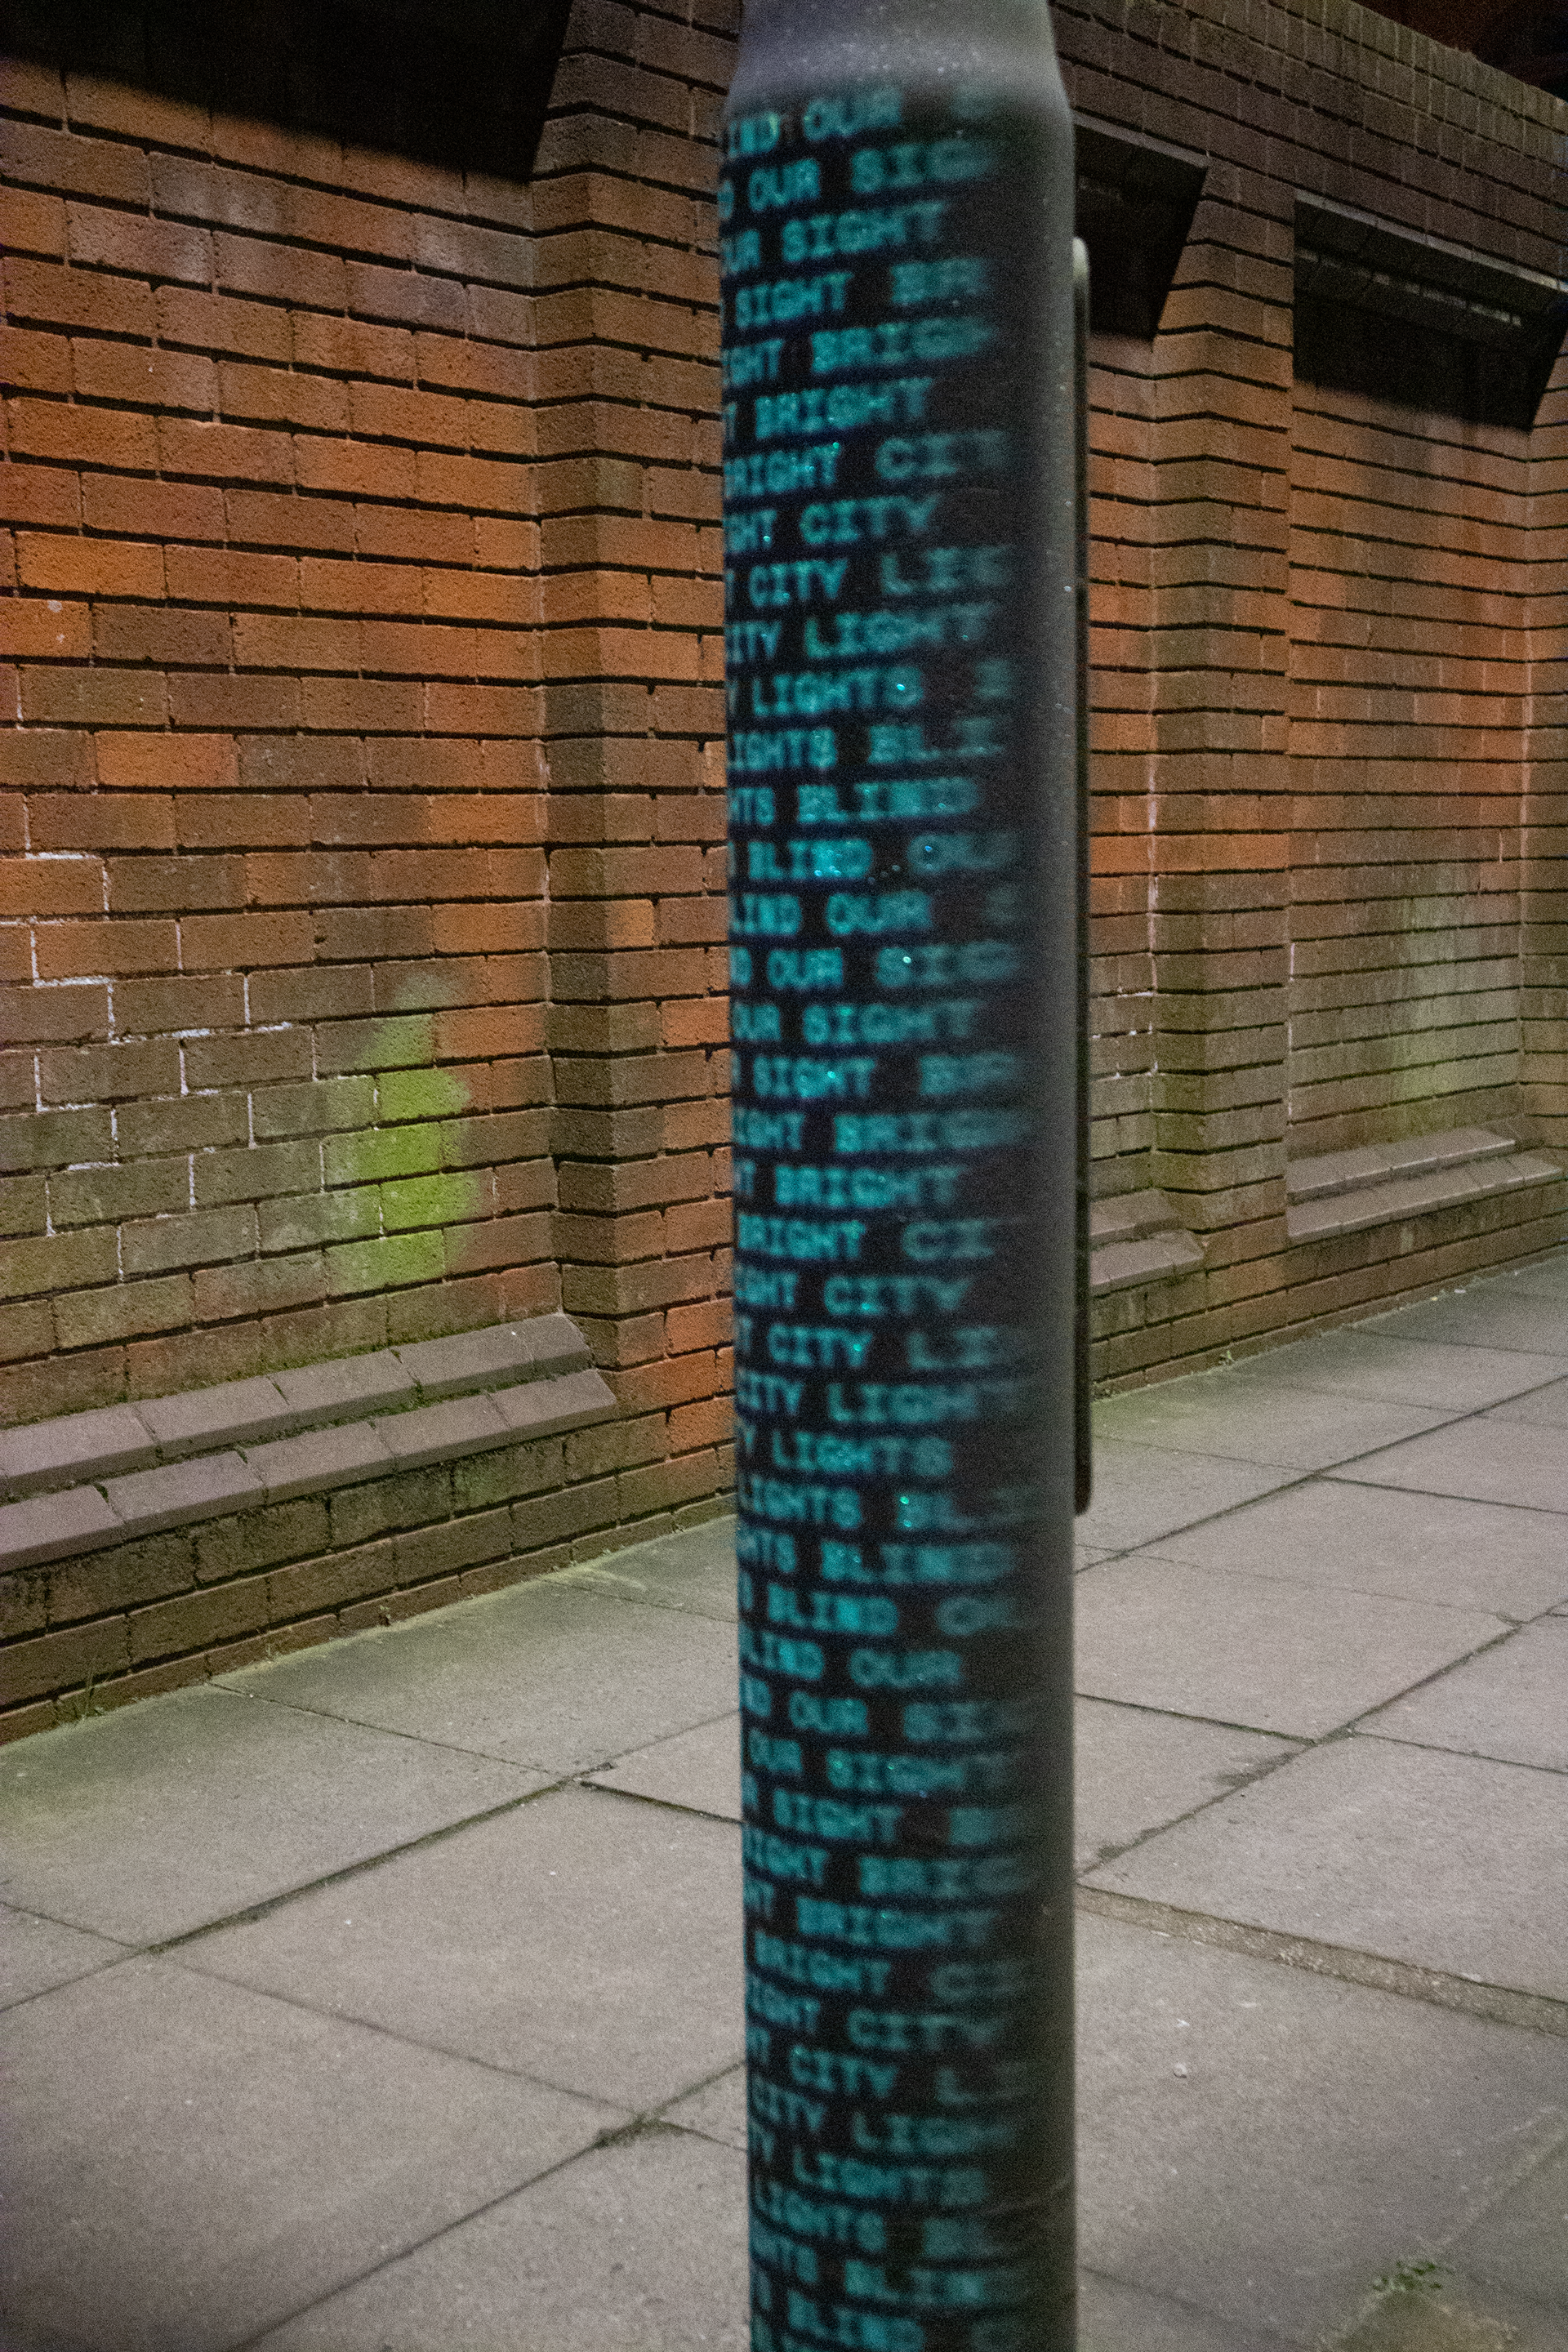 IND OUR
OUR SIG
UR SIGHT
SIGHT BR
IGHT BRIGH
T BRIGHT
BRIGHT CIT
GHT CITY
T CITY LIG
CITY LIGHT
Y LIGHTS
LIGHTS BLI
HTS BLIND
BLIND OU
LIND OUR
D OUR SIG
OUR SIGHT
SIGHT BR
IGHT BRIGH
T BRIGHT
BRIGHT CI
GHT CITY
T CITY LI
CITY LIGHT
Y LIGHTS
LIGHTS BL
HTS BLIND
BLIND OU
LIND OUR
ND OUR SI
OUR SIGHT
R SIGHT B
IGHT BRIG
HT BRIGHT
BRIGHT CI
IGHT CITY
T CITY LI
CITY LIGH
TY LIGHTS
LIGHTS BL
HTS BLIN
BLIND